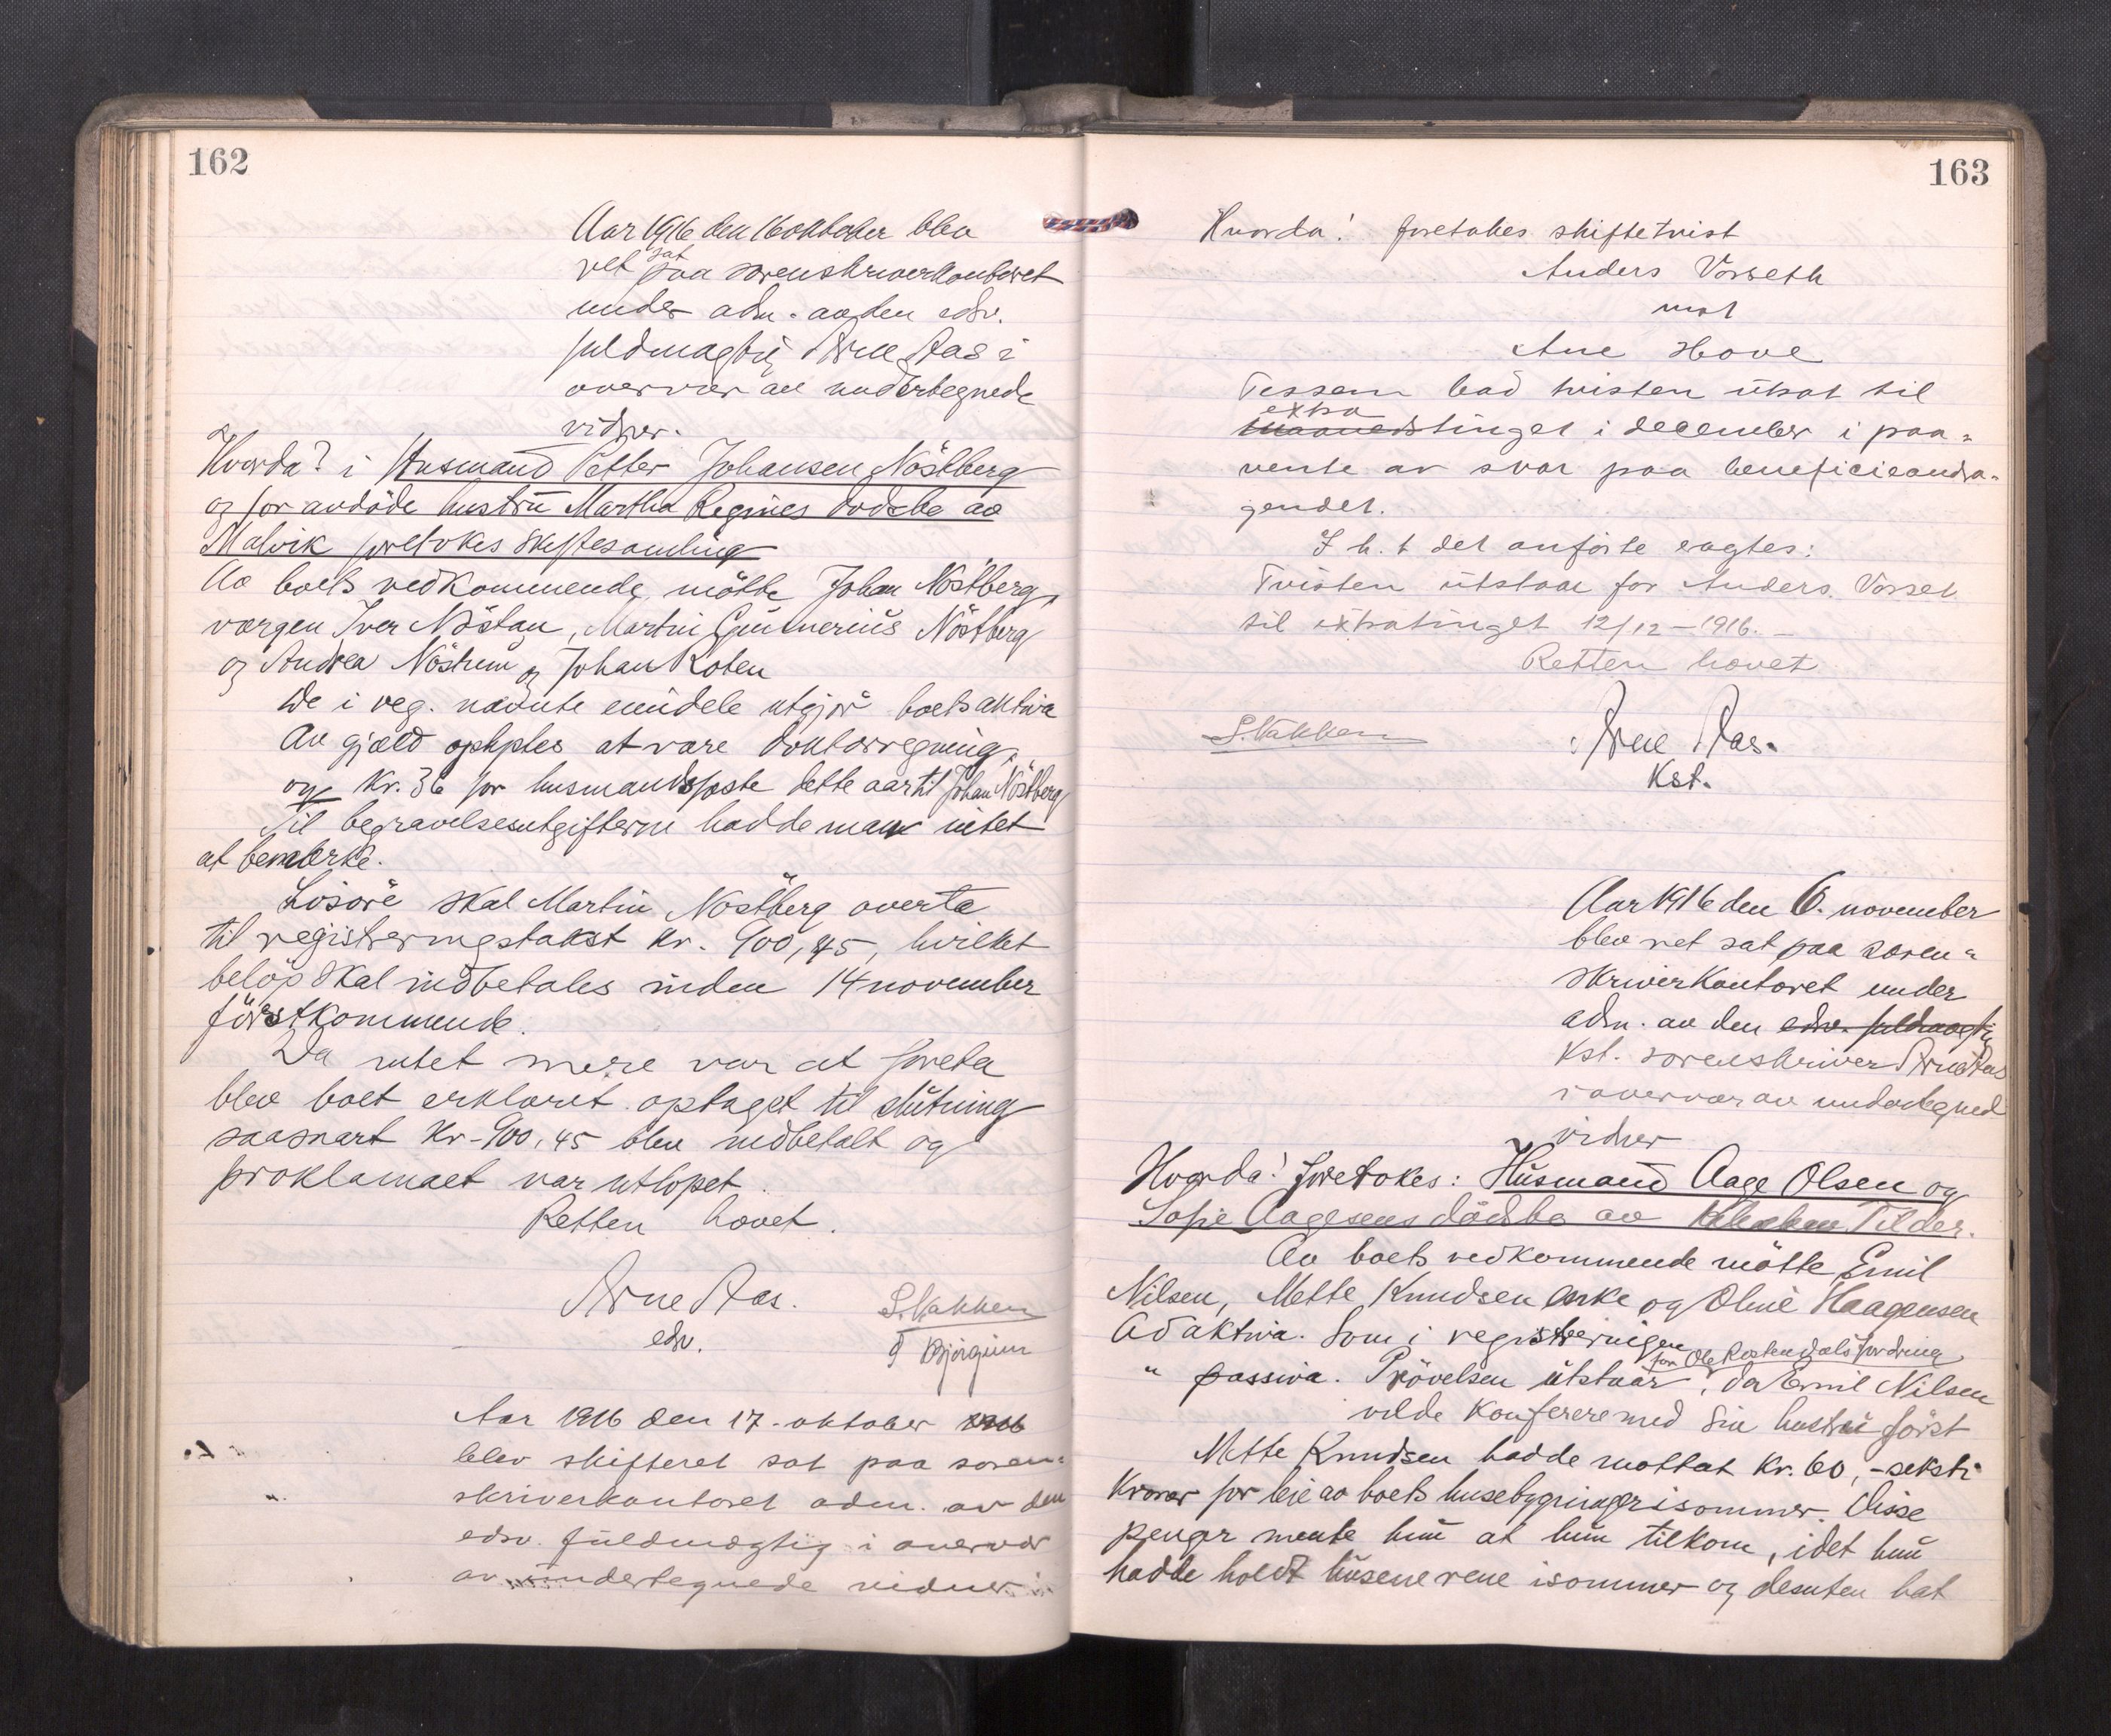 162
Aar 1916 den 16 oktober blev
ret sat paa sorenskriverkontoret
under adm. av den edsv.
fuldmægtig Arne Aas i
overvær av undertegnede
vidner.
Hvorda? i Husmand Petter Johansen Nöstberg
og for avdöde hustru Martha Regines dödsbo av
Malvik foretokes skiftesamling
Av boets vedkommende mötte Johan Nöstberg,
værgen Iver Nöstan, Martin Gunnerius Nöstberg
og Andrea Nöstrum og Johan Roten
De i reg. nævnte eiendele utgjör boets aktiva
Av gjæld oplystes at være doktorregning,
og kr. 36 for husmandsfæste dette aar til Johan Nöstberg
Til begravelsesutgifterne hadde man intet
at bemærke.
Lösöre skal Martin Nöstberg overta
til registreringstakst kr. 900,45, hvilket
belöp skal indbetales inden 14 november
förstkommende.
Da intet mere var at foreta
blev boet erklæret optaget til slutning
saasnart Kr. 900,45 blev indbetalt og
proklamaet var utlöpet.
Retten hævet.
Arne Aas.
edsv.
S. Nakken
T Bjørgum
Aar 1916 den 17. oktober 1916
blev skifteret sat paa soren-
skriverkontoret adm. av den
edsv. fuldmægtig i overvær
av undertegnede vidner:
163
Hvorda! foretokes skiftetvist
Anders Vorseth
mot
Ane Hove
Tessem bad tvisten utsat til
extra
maanedstinget i december i paa-
vente av svar paa beneficieandra-
gendet.
I h. t det anförte eragtes:
Tvisten utstaar for Anders Vorset
til extratinget 12/12-1916.-
Retten hævet
S. Nakken
Arne Aas.
Kst.
Aar 1916 den 6. november
blev ret sat paa soren-
skriverkontoret under
adm. av den edsv. fuldmægtig
Kst. sorenskriver Arne Aas
i overvær av undertegned
vidner
Hvorda! foretokes: Husmand Aage Olsen og
Sofie Aagesens dödsbo av Tilder.
Av boets vedkommende mötte Emil
Nilsen, Mette Knudsen enke og Oline Haagensen
Ad aktiva. Som i registreringen
for Ole Rostendals fordring
" passiva. Prövelsen utstaar, da Emil Nilsen
vilde konferere med sin hustru först
Mette Knudsen hadde mottat kr. 60,- seksti
Kroner for leie av boets husebygninger isommer. Disse
penger mente hun at hun tilkom, idet hun
hadde holdt husene rene isommer og desuten hat